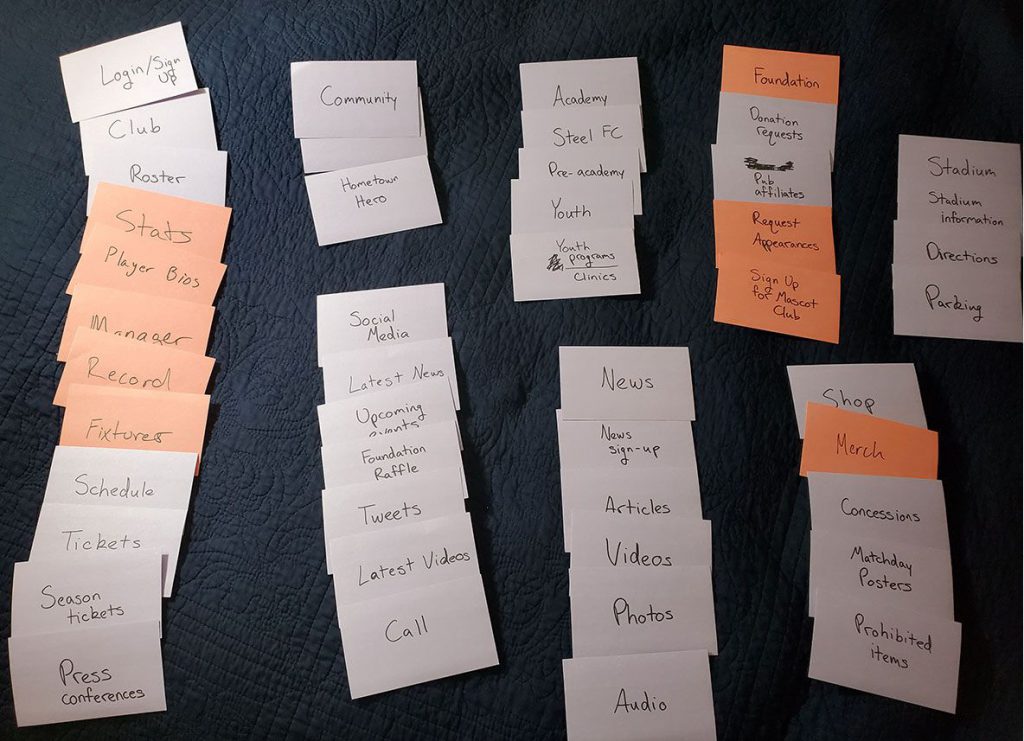 Login/Sign
Up
Club
Roster
Stats
Player Bios
Manager
Record
Fixtures
Schedule
Tickets
Season
tickets
Press
conferences
Community
Hometown
Hero
Social
Media
Latest News
Upcoming
events
Foundation
Raffle
Tweets
Latest Videos
Call
Academy
Steel FC
Pre-academy
Youth
Youth
programs
Clinics
News
News
sign-up
Articles
Videos
Photos
Audio
Foundation
Donation
requests
Pub
affiliates
Request
Appearances
Sign Up
for Mascot
Club
Stadium
Stadium
information
Directions
Parking
Shop
Merch
Concessions
Matchday
Posters
Prohibited
items